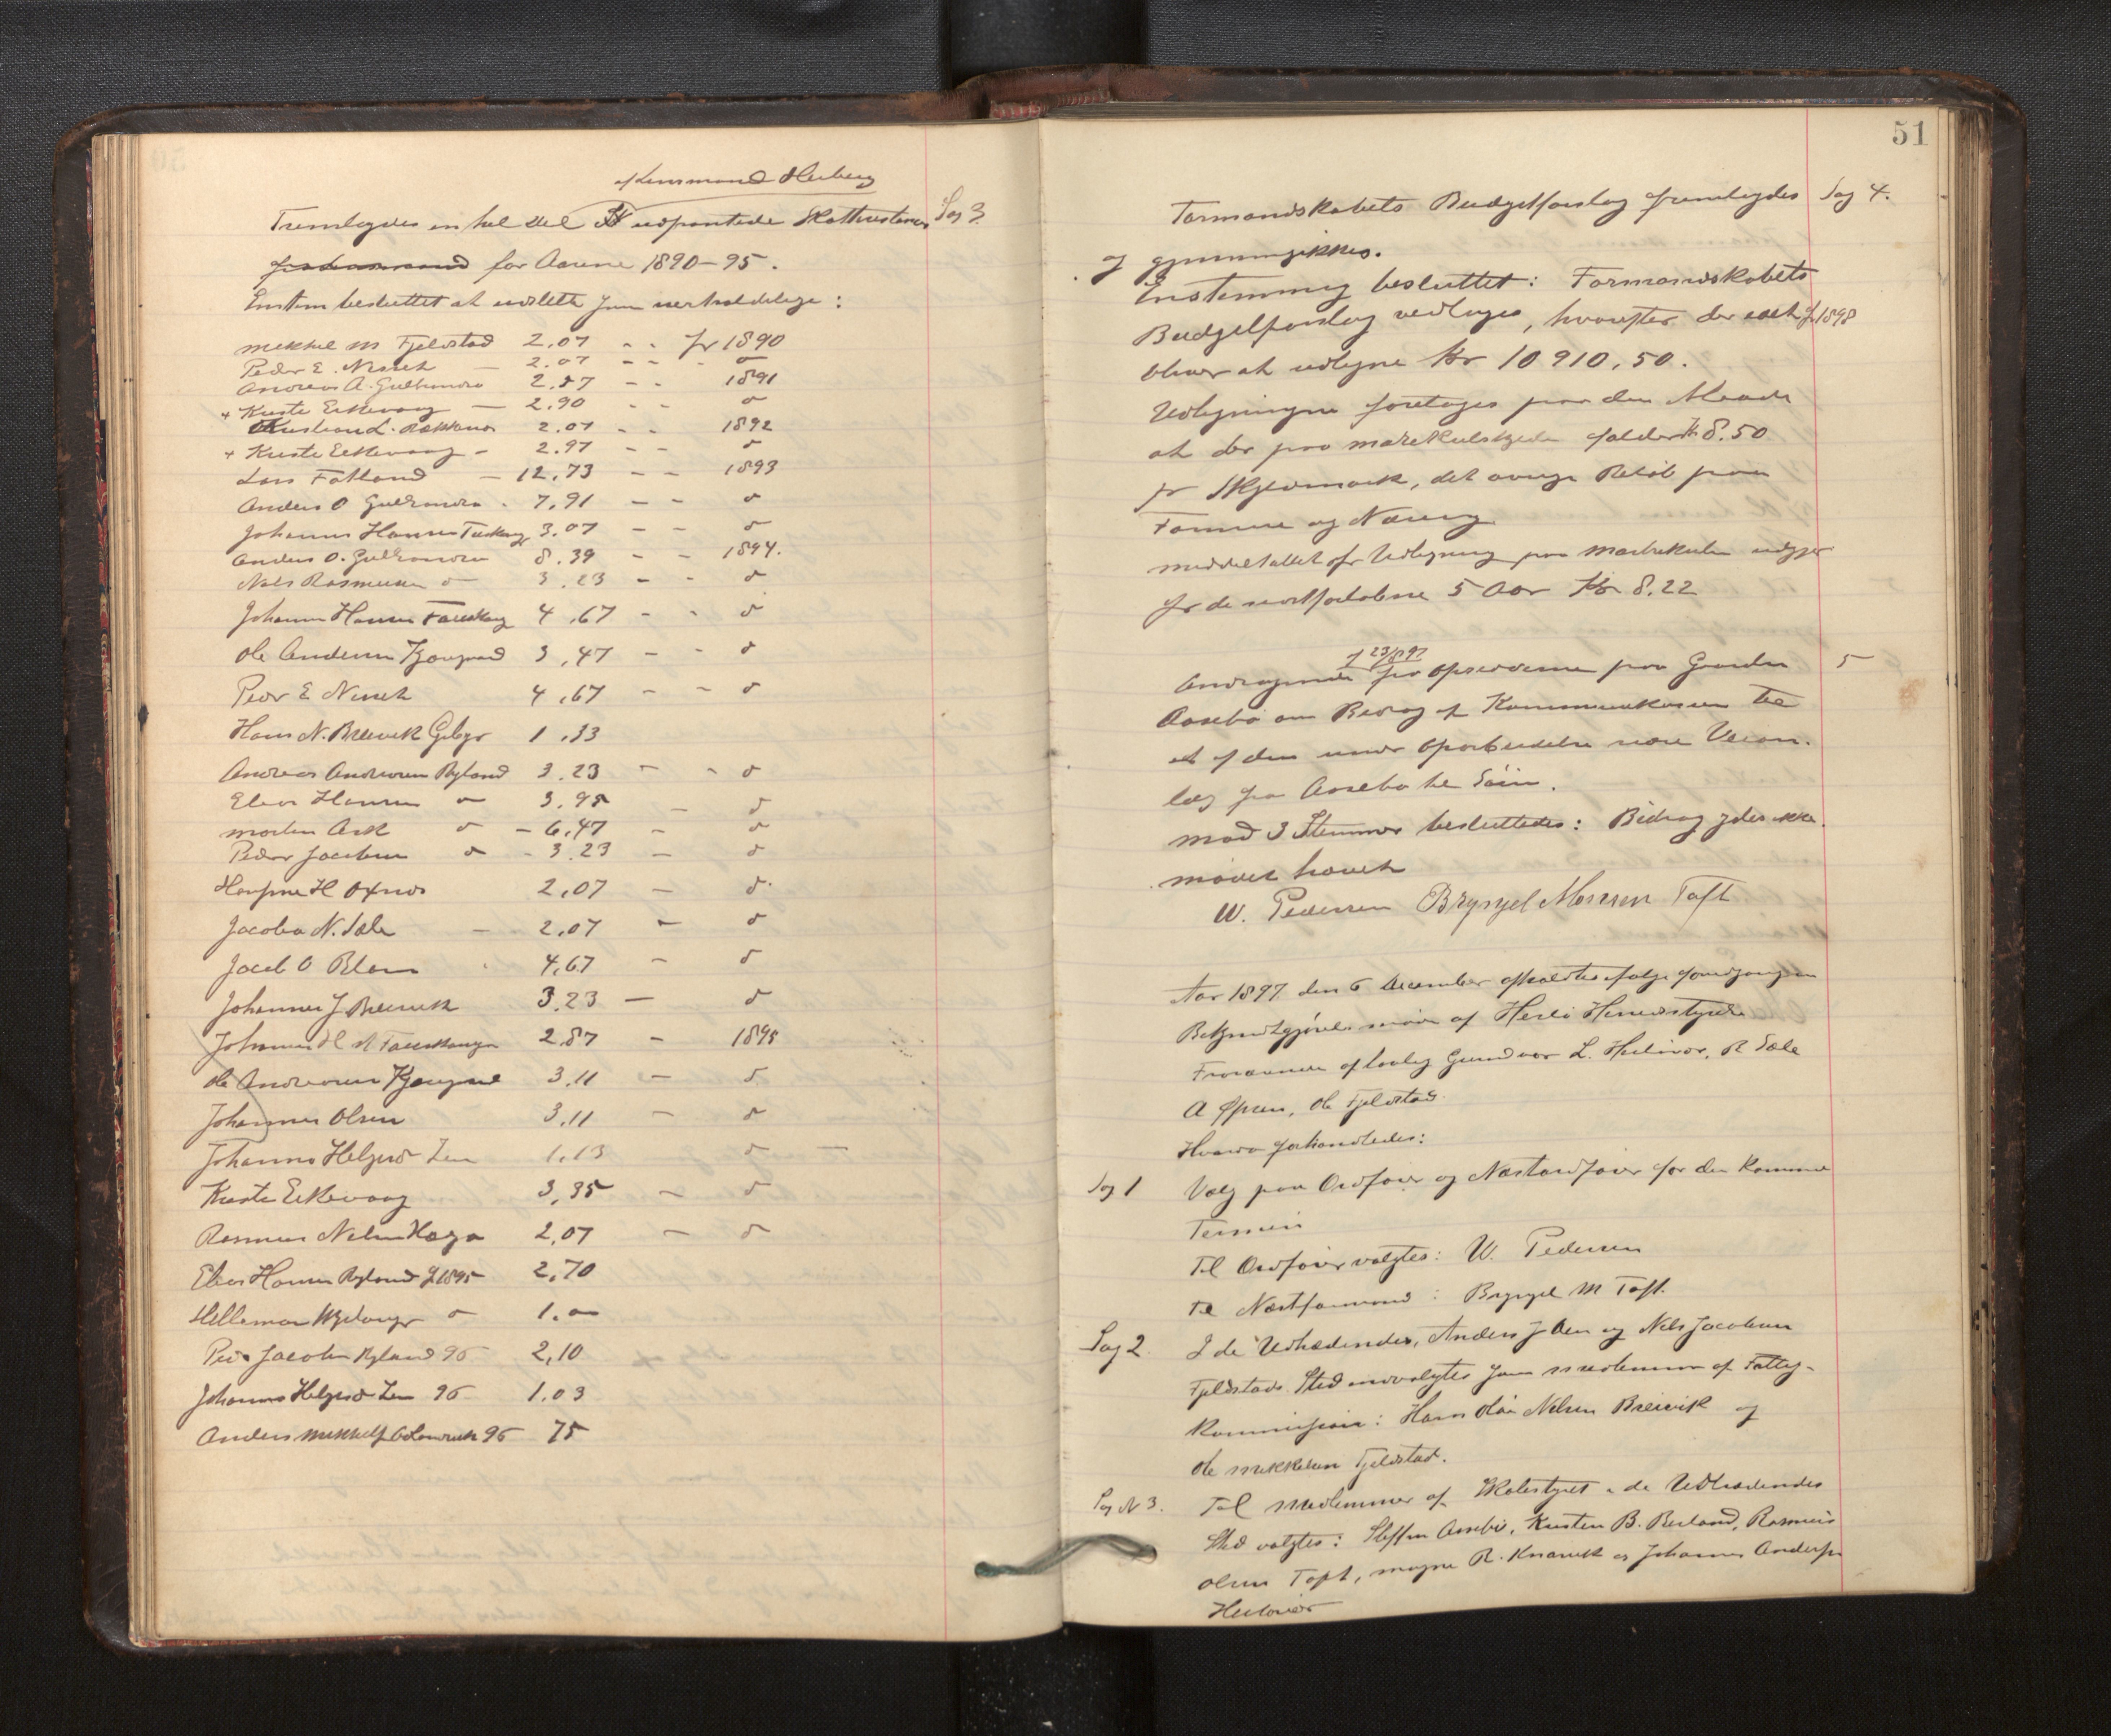 af Lensmand Herberg
Fremlagdes en hel del udpantede Skatterestancer
Sag 3
for Aarene 1890-95.
Enstem besluttet at udslette som uerholdelige:
Mikkel M Fjeldstad 2,07 - - for 1890
Peder E. Nesset - 2.07 - - do
Andreas A. 2.87 - - 1891
+ Kirste Eikevaag - 2.90 - - do
L. 2.07 - - 1892
+ Kirste Eikevaag - 2.97 - - do
Lars Fotland - 12.73 - - 1893
Anders O 7,91 - - do
Johannes Hansen 3.07 - - do
Anders O. 8.39 - - 1894.
Nils Rasmussen do 3.23 - - do
Johannes Hansen 4,67 - - do
Ole Andersen 3,47 - - do
Peder E Nesset 4,67 - - do
Hans N. Breivik 1,33
Andreas Andersen Ryland 3.23 - - do
Elias Hansen do 3.95 - do
Morten Ask do - 6,47 - do
Peder Jacobsen do - 3.23 - do
H Oxnes 2,07 - do
Jacob N. Sæle - 2,07 - do
Jacob O Blom 4,67 - do
Johannes J Breivik 3.23 - do
Johannes H 2,87 - 1895
Ole Andersen 3,11 - do
Johannes Olsen 3,11 - do
Johannes Helgesen 1,13 do -
Kirste Eikevaag 3,35 - do
Rasmus Nilsen 2,07 - do
Elias Hansen Ryland f 1895 2,70
do 1.00
Peder Jacobsen Ryland 96 2,10
Johannes Helgesen 96 1.03
Anders Mikkels 96 75
51
Formandskabets Budgetforslag fremlagdes
Sag 4.
og gjennemgikkes.
Enstemmig besluttet: Formandskabets
Budgetforslag vedtages, hvorefter der
f 1898
bliver at udligne Kr 10 910,50.
Udligningen foretages paa den Maade
at der paa Matrikulskyld falder Kr 8.50
pr Skyldmark, det øvrige Beløb paa
Formue og Næring
Middeltallet for Udligning paa Matrikulen udgjør
for de sidstforløbne 5 Aar Kr 8.22
f 23/8 97
Andragende fra Opsidderne paa Gaarden
5
Aasebø om Bidrag af Kommunekassen til
et af dem under Oparbeidelse være Veian-
læg fra Aasebø til Søen.
Mod 3 Stemmer besluttedes: Bidrag ydes ikke.
Mødet hævet
W. Pedersen Brynjel Monsen Toft
Aar 1897 den 6 December afholdtes ifølge foregaaende
Bekjendtgjørelse møde af Herlø Herredsstyrelse
Fraværende af lovlig Grund var L. Husebøe, R Sæle
A Ole Fjeldstad.
Hvorda forhandledes:
Sag 1 Valg paa Ordfører og Næstordfører for den kommende
Termin
Til Ordfører valgtes: W. Pedersen
til Næstformand: Brynjel M Toft.
Sag 2 I de Udtrædendes, Anders J Øen og Nils Jacobsen
Fjeldstads Sted indvalgtes som Medlemmer af Fattig-
kommissionen: Hans Olai Nilsen Breivik og
Ole Mikkelsen Fjeldstad.
Sag N 3. Til Medlemmer af Skolestyret i de Udtrædendes
Sted valgtes: Steffen Aasebø, Kristen B. Berland, Rasmus
Olsen Toft, Mogne R. Knarvik og Johannes Anders
Husebø